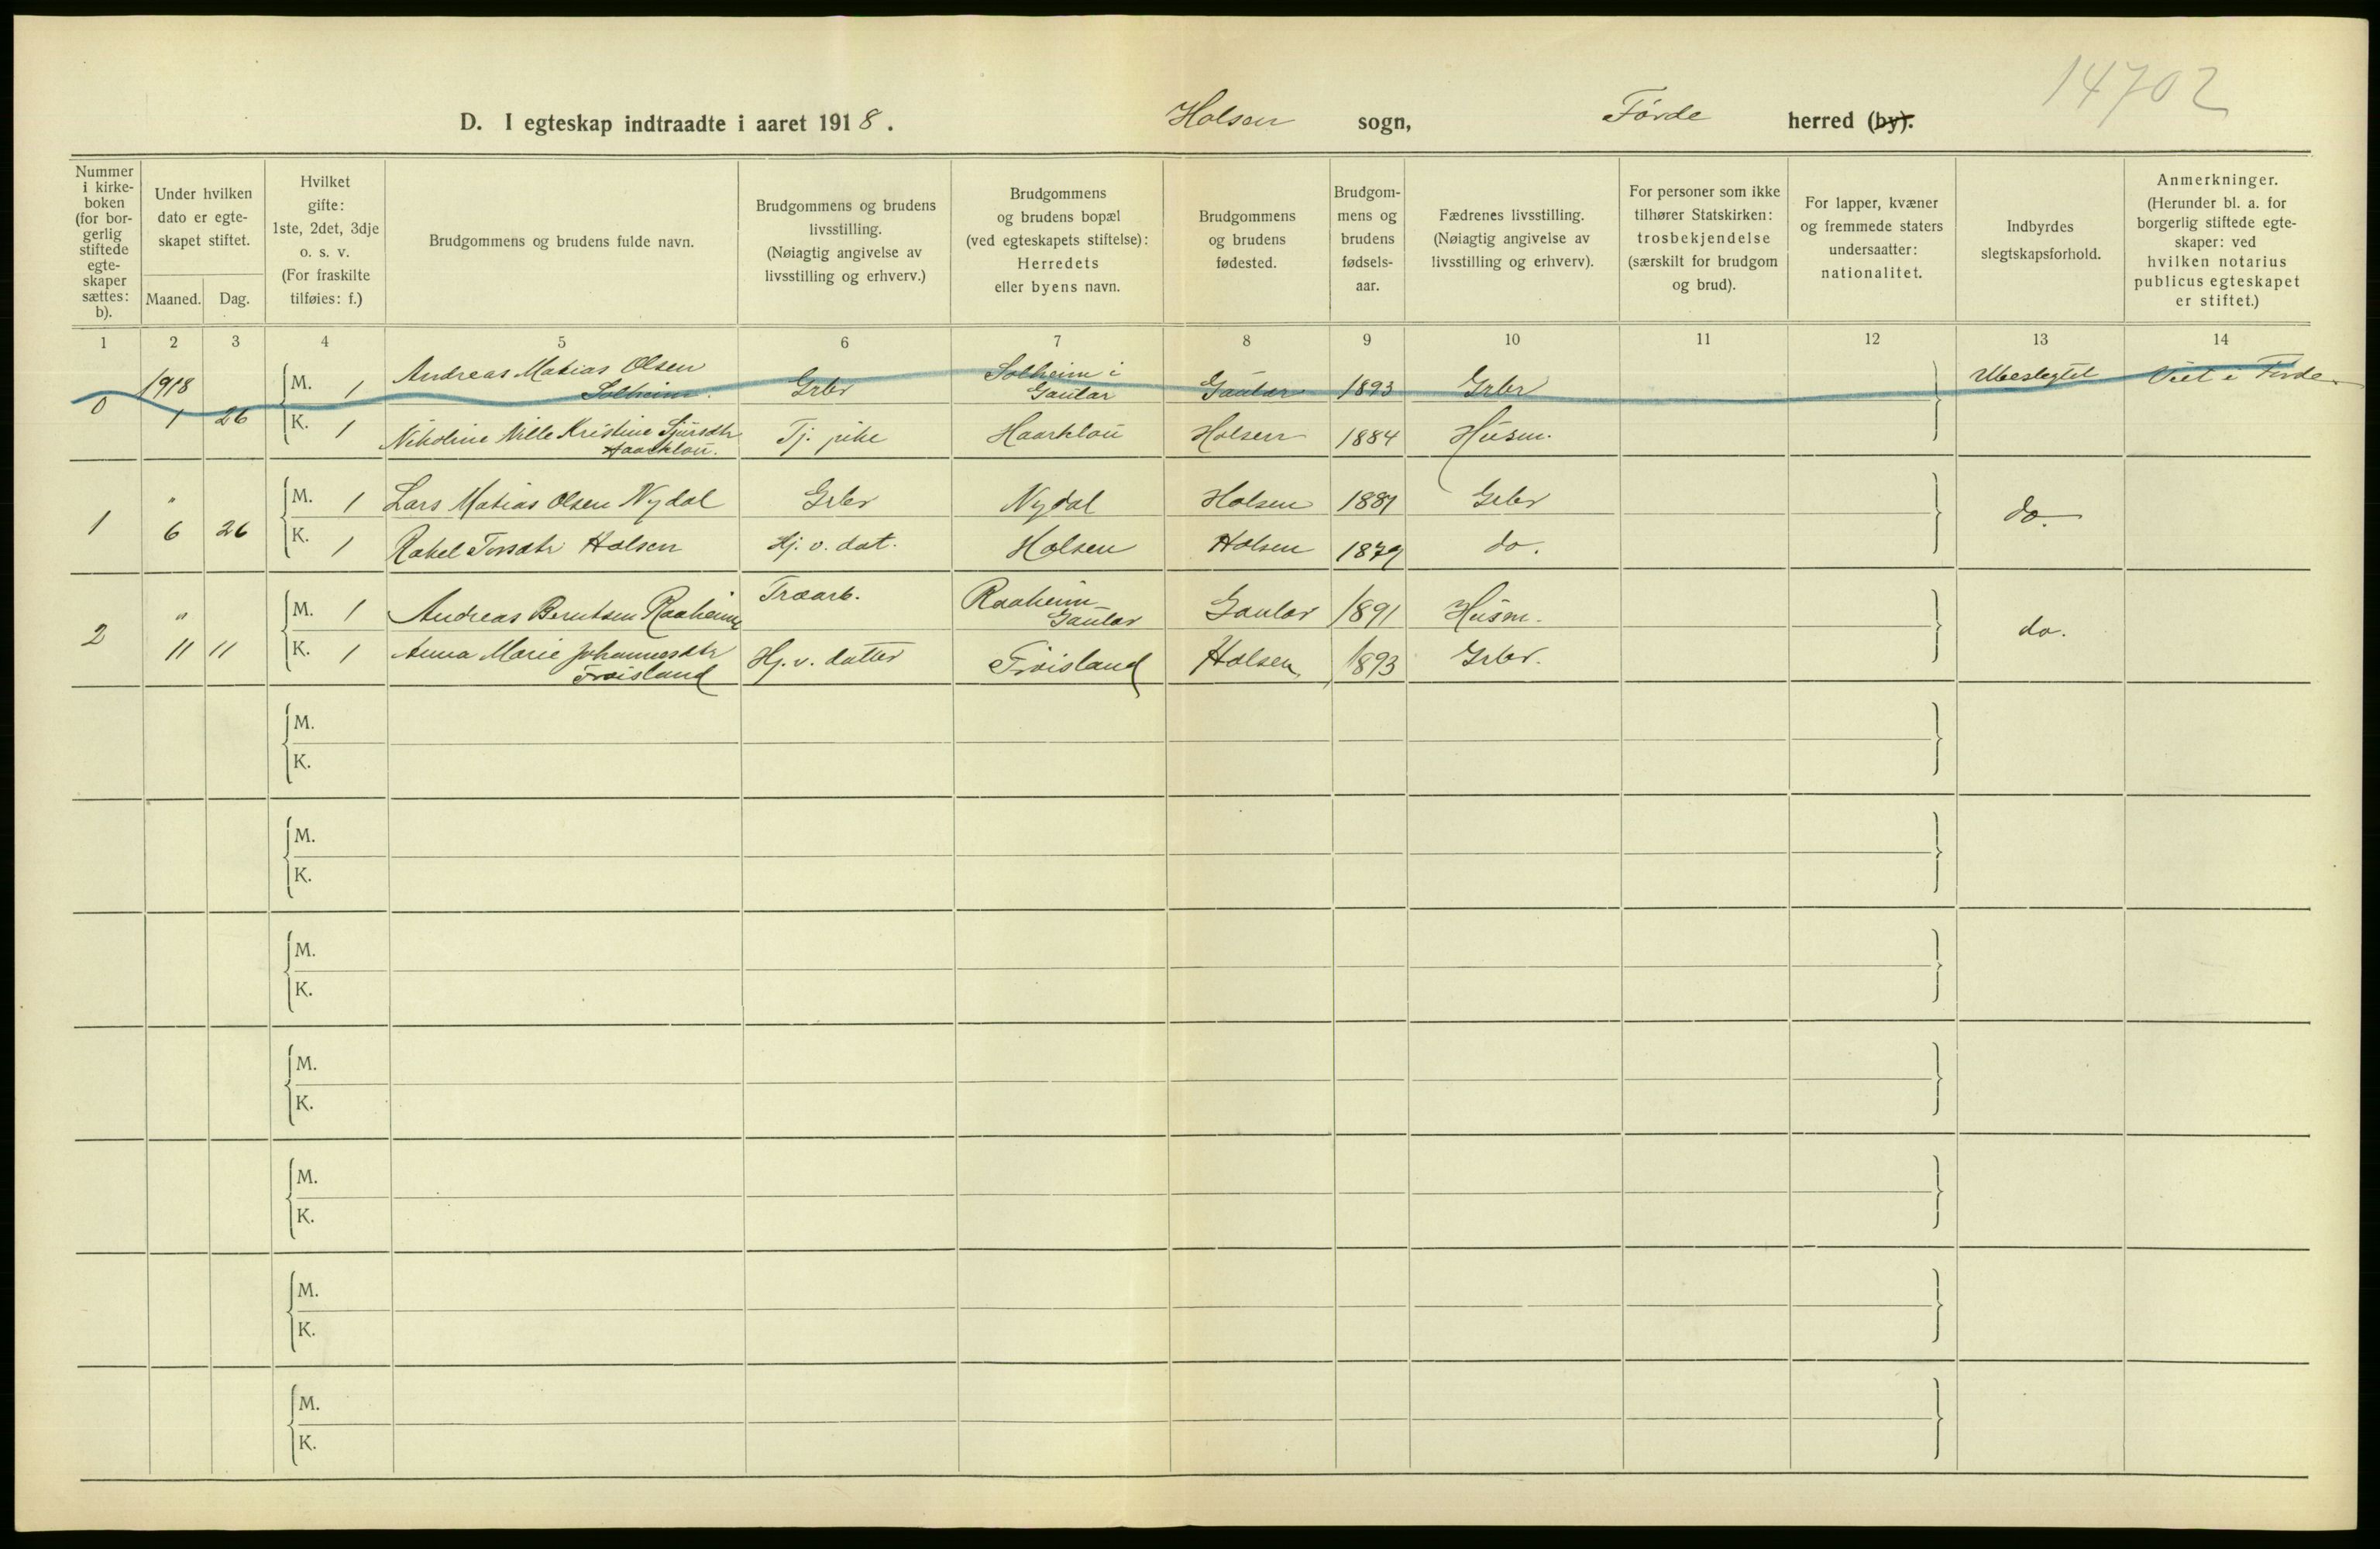 14702
D. I egteskap indtraadte i aaret 1918. Holsen sogn, Førde herred (by).
Nummer i kirke-boken (for bor-gerlig stiftede egte-skaper sættes: b).
Under hvilken dato er egte-skapet stiftet.
Maaned. Dag.
Hvilket gifte: 1ste, 2det, 3dje o. s. v. (For fraskilte tilføies: f.)
Brudgommens og brudens fulde navn.
Brudgommens og brudens livsstilling. (Nøiagtig angivelse av livsstilling og erhverv.)
Brudgommens og brudens bopæl (ved egteskapets stiftelse): Herredets eller byens navn.
Brudgommens og brudens fødested.
Brudgom-mens og brudens fødsels-aar.
Fædrenes livsstilling. (Nøiagtig angivelse av livsstilling og erhverv).
For personer som ikke tilhører Statskirken: trosbekjendelse (særskilt for brudgom og brud).
For lapper, kvæner og fremmede staters undersaatter: nationalitet.
Indbyrdes slegtskapsforhold.
Anmerkninger. (Herunder bl. a. for borgerlig stiftede egte-skaper: ved hvilken notarius publicus egteskapet er stiftet.)
1 2 3 4 5 6 7 8 9 10 11 12 13 14
0 1918 1 26
M. 1 Andreas Matias Olsen Solheim. Grbr Solheim i Gaular Gaular 1893 Grbr Ubeslegtet Viet i Førde.
K. 1 Nikoline Nille Kristine Sjursdtr Haarklou. Tj. pike Haarklou Holsen 1884 Husm.
1 " 6 26
M. 1 Lars Matias Olsen Nydal Grbr Nydal Holsen 1881 Grbr do.
K. 1 Rakel Torsdtr Holsen Hj. v. dat. Holsen Holsen 1879 do.
2 " 11 11
M. 1 Andreas Berntsen Raaheim Træarb. Raaheim Gaular Gaular 1891 Husm. do.
K. 1 Anna Marie Johannesdtr Frøisland Hj. v. datter Frøisland Holsen 1893 Grbr.
M.
K.
M.
K.
M.
K.
M.
K.
M.
K.
M.
K.
M.
K.